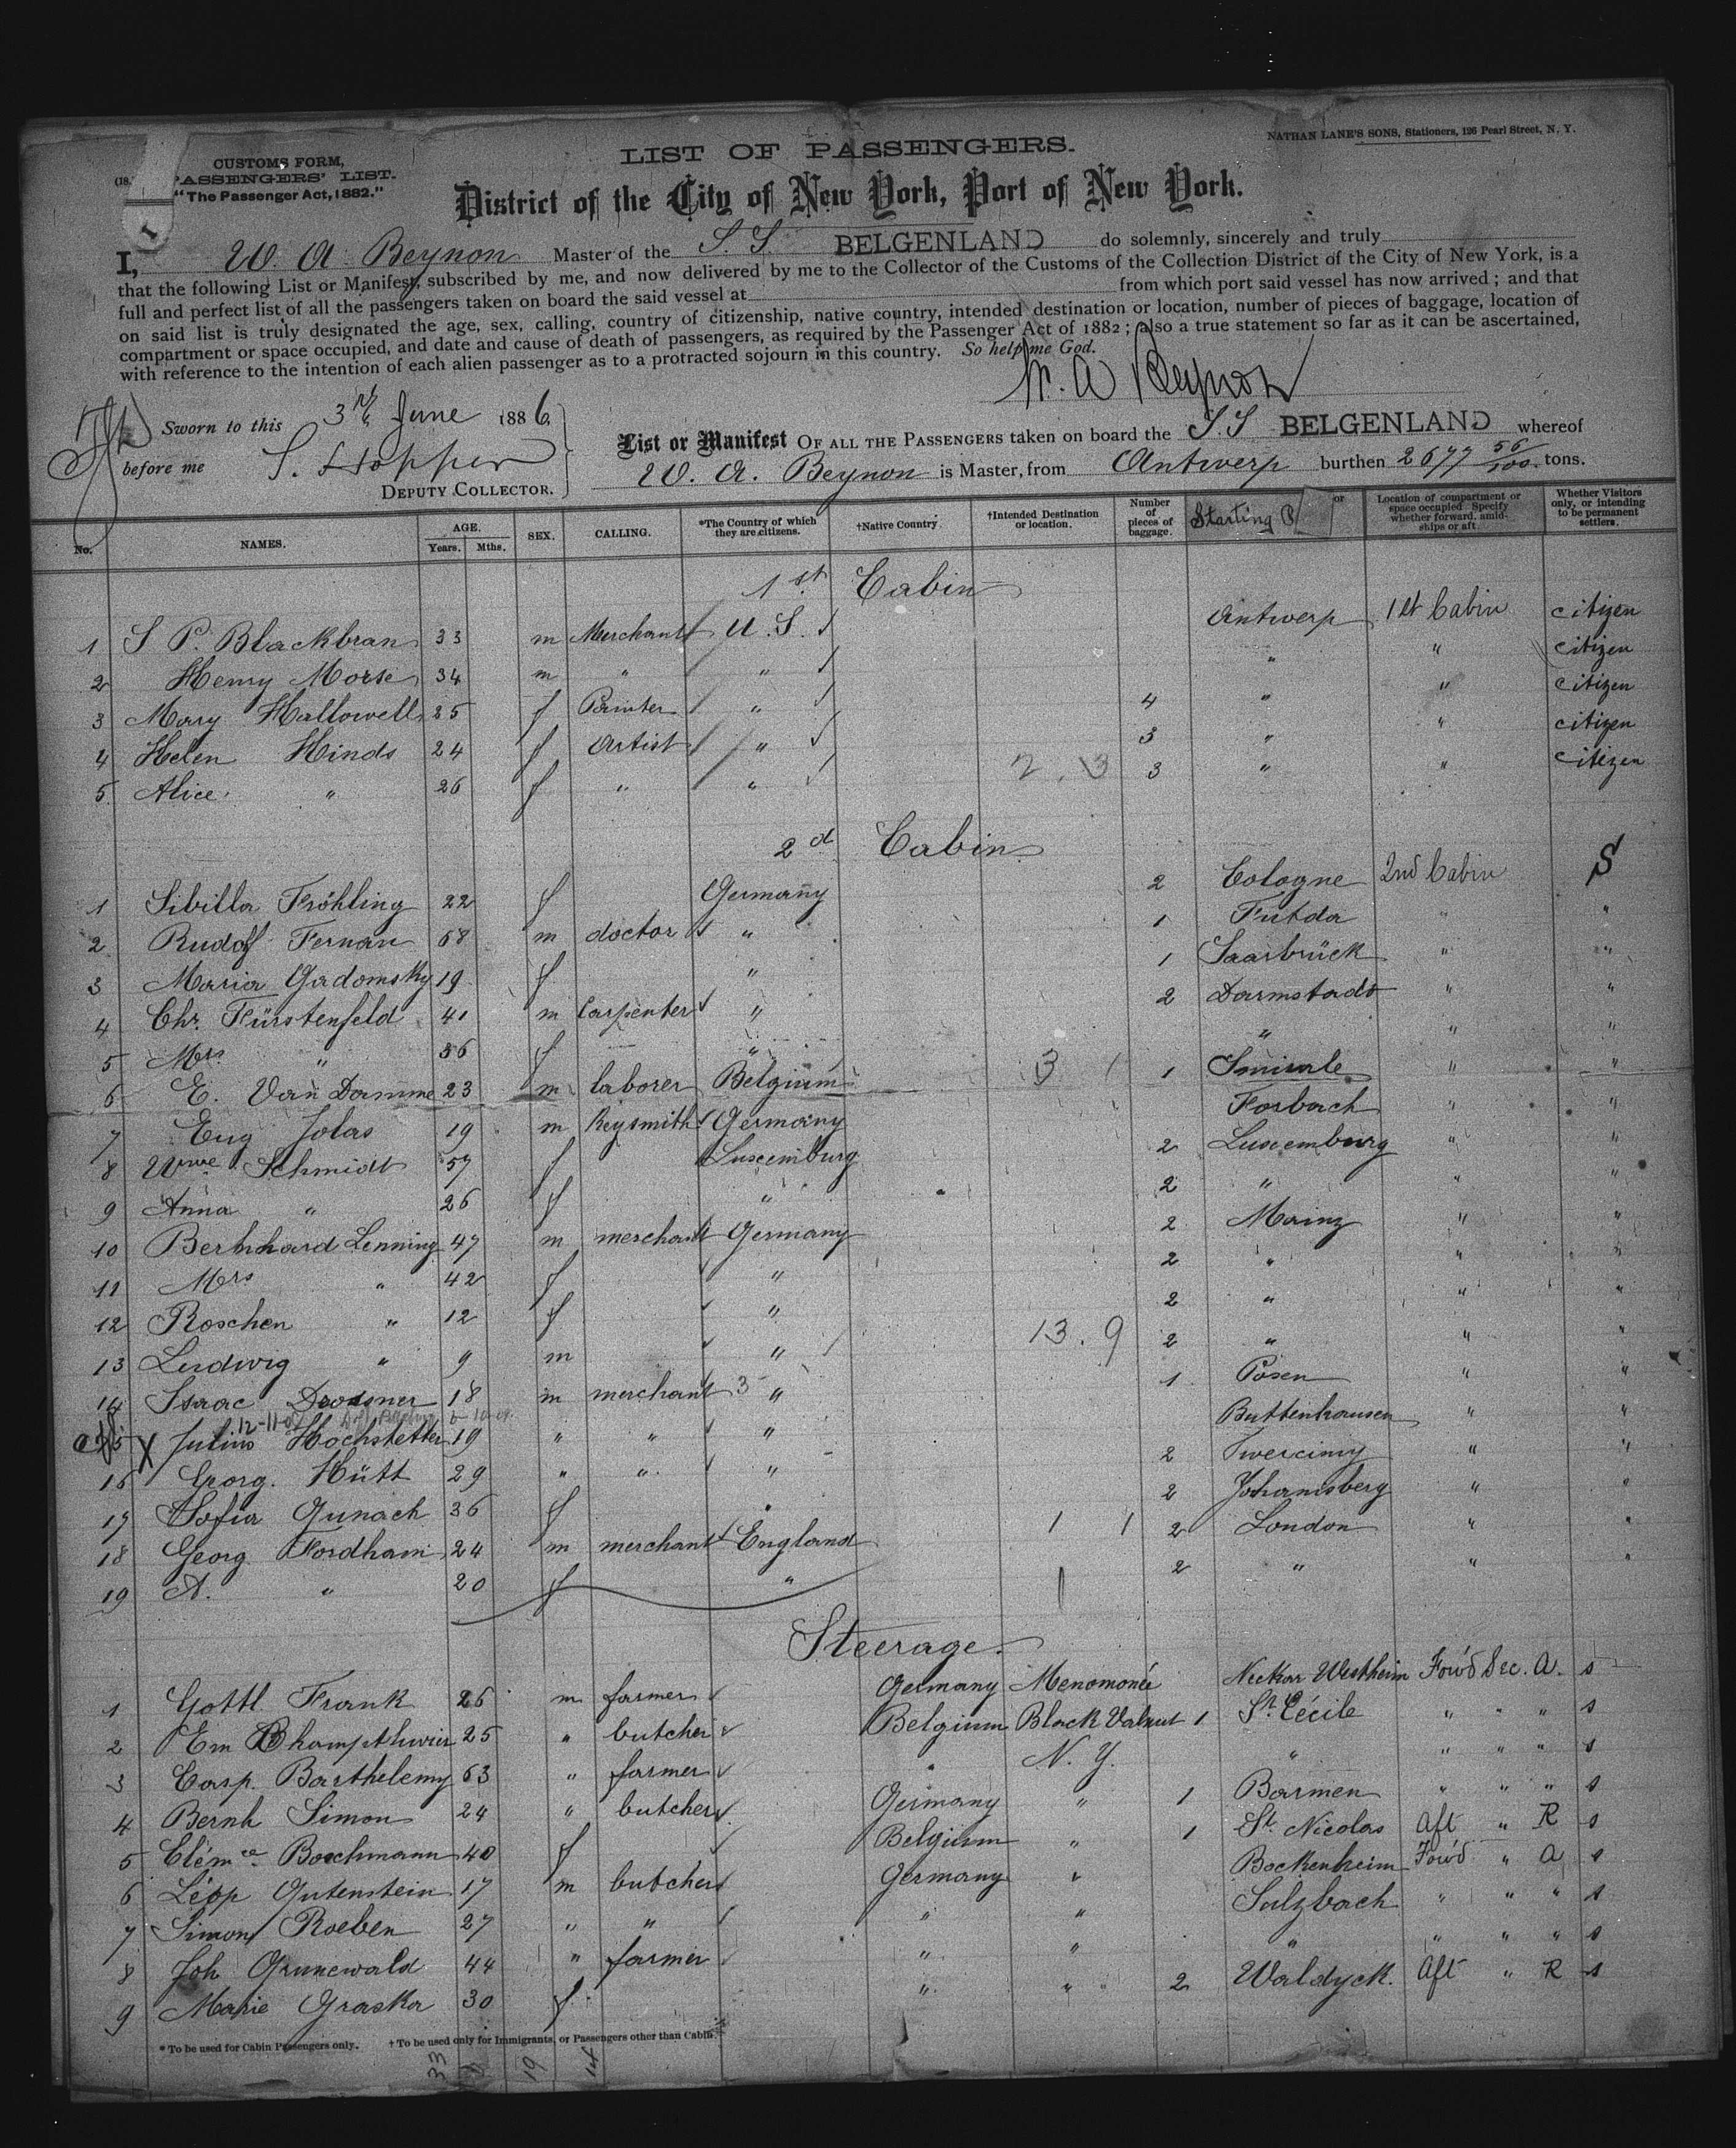 NATHAN LANE'S SONS, Stationers, 126 Pearl Street, N. Y.
CUSTOMS FORM,
PASSENGERS' LIST.
"The Passenger Act, 1882."
1
LIST OF PASSENGERS.
District of the City of New York, Port of New York.
I, W. A Beynon Master of the S. S BELGENLAND do solemnly, sincerely and truly
that the following List or Manifest, subscribed by me, and now delivered by me to the Collector of the Customs of the Collection District of the City of New York, is a
full and perfect list of all the passengers taken on board the said vessel at from which port said vessel has now arrived; and that
on said list is truly designated the age, sex, calling, country of citizenship, native country, intended destination or location, number of pieces of baggage, location of
compartment or space occupied, and date and cause of death of passengers, as required by the Passenger Act of 1882; also a true statement so far as it can be ascertained,
with reference to the intention of each alien passenger as to a protracted sojourn in this country. So help me God.
W. A Beynon
Sworn to this 3rd June 1886
before me S. Hopper
DEPUTY COLLECTOR.
List or Manifest OF ALL THE PASSENGERS taken on board the S.S BELGENLAND whereof
W. A. Beynon is Master, from Antwerp burthen 2677 56/100 tons.
No. NAMES. AGE. Years. Mths. SEX. CALLING. *The Country of which they are citizens. †Native Country. †Intended Destination or location. Number of pieces of baggage. Starting P or Location of compartment or space occupied Specify whether forward, amidships or aft. Whether Visitors only, or intending to be permanent settlers.
1st Cabin
1 S P. Blackbran 33 m Merchant U. S. Antwerp 1st Cabin citizen
2 Henry Morse 34 m " " " " citizen
3 Mary Hallowell 25 f Painter " 4 " " citizen
4 Helen Hinds 24 f Artist " 3 " " citizen
5 Alice " 26 f " " 2. 3 3 " " citizen
2d Cabin
1 Sibilla Fröhling 22 f Germany 2 Cologne 2nd Cabin S
2 Rudolf Fernau 68 m doctor " 1 Futda " "
3 Maria Gadomsky 19 f " 1 Saarbrück " "
4 Chr. Fürstenfeld 41 m Carpenter " 2 Darmstadt " "
5 Mrs " 36 f " " " "
6 E. Van Damme 23 m laborer Belgium 3 1 1 " "
7 Eug Jolas 19 m Keysmith Germany Forbach " "
8 Wwe Schmidt 57 f Luxemburg 2 Luxemburg " "
9 Anna " 26 f " 2 " " "
10 Bernhard Lenning 47 m merchant Germany 2 Mainz " "
11 Mrs " 42 f " 2 " " "
12 Roschen " 12 f " 2 " " "
13 Ludwig " 9 m " 13. 9 2 " " "
14 Isaac Drossner 18 m merchant 3 " 1 Posen " "
15 X Julius Hochstetter 19 " " " Buttenhausen " "
16 Georg. Hütt 29 " " " 2 " "
17 Sofia Gunach 36 f " 2 Johannsberg " "
18 Georg Fordham 24 m merchant England 1 1 2 London " "
19 A. " 20 f " 1 2 " " "
Steerage.
1 Gottl Frank 26 m farmer Germany Menomonie Neckar Westheim Fow'd Sec. A. s
2 Em 25 " butcher Belgium Black Valnut 1 St. Cécile " " " s
3 Casp. Barthelemy 63 " farmer " N. Y. " " " " s
4 Bernh Simon 24 " butcher Germany " 1 Barmen " " " s
5 Clémce Boschmann 40 f Belgium " 1 St. Nicolas Aft " R s
6 Léop Gutenstein 17 m butcher Germany " Bockenheim Fow'd " A s
7 Simon Roeben 27 " " " " Sulzbach " " " s
8 Joh Grunewald 44 " farmer " " " " " " s
9 Marie Graska 30 f " " 2 Waldyck. Aft " R s
*To be used for Cabin Passengers only. †To be used only for Immigrants, or Passengers other than Cabin.
33 19 14